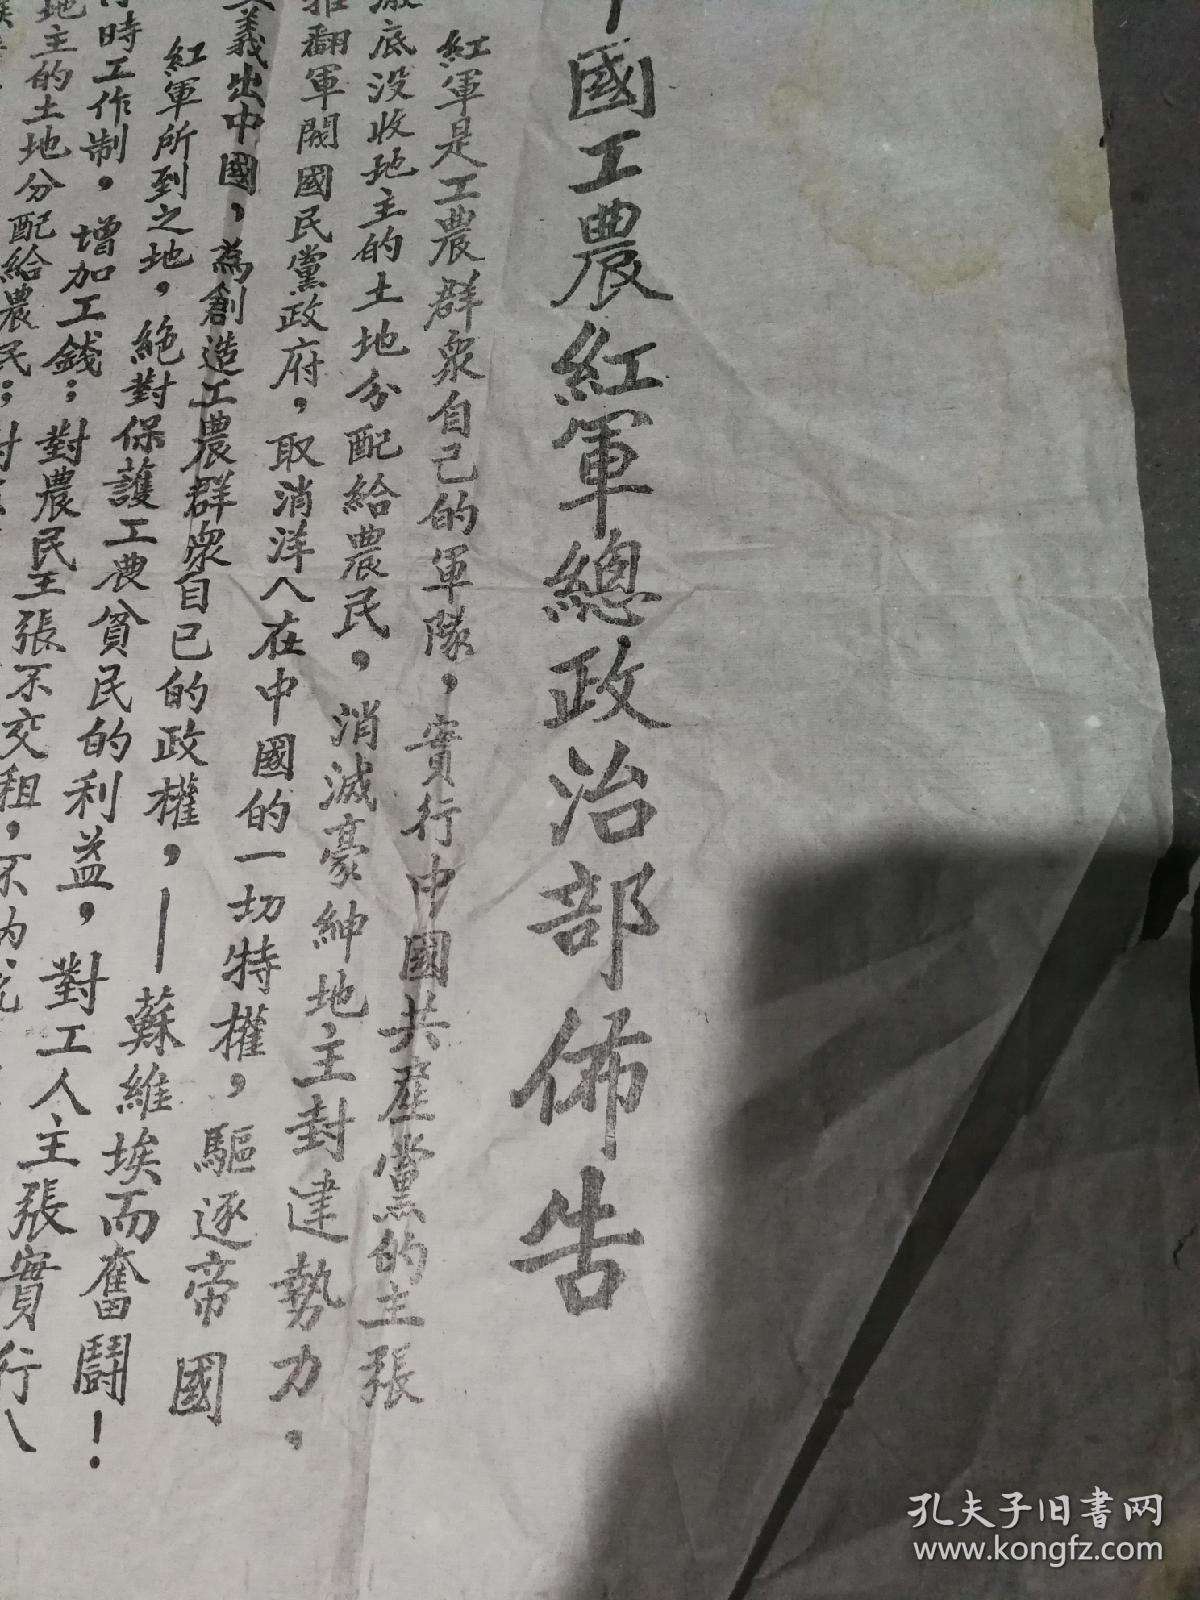 國工農紅軍總政治部佈告
紅軍是工農群衆自己的軍隊，實行中國共產黨的主張
底没收地主的土地分配給農民，消滅豪紳地主封建勢力，
翻軍閥國民黨政府，取消洋人在中國的一切特權，驅逐帝國
義出中國，為創造工農群衆自己的政權，—蘇維埃而奮鬪！
紅軍所到之地，絶對保護工農貧民的利益，對工人主張實行八
時工作制，增加工錢；對農民主張不交租，不納
地主的土地分配給農民；對
孔夫子旧书网
www.kongfz.com